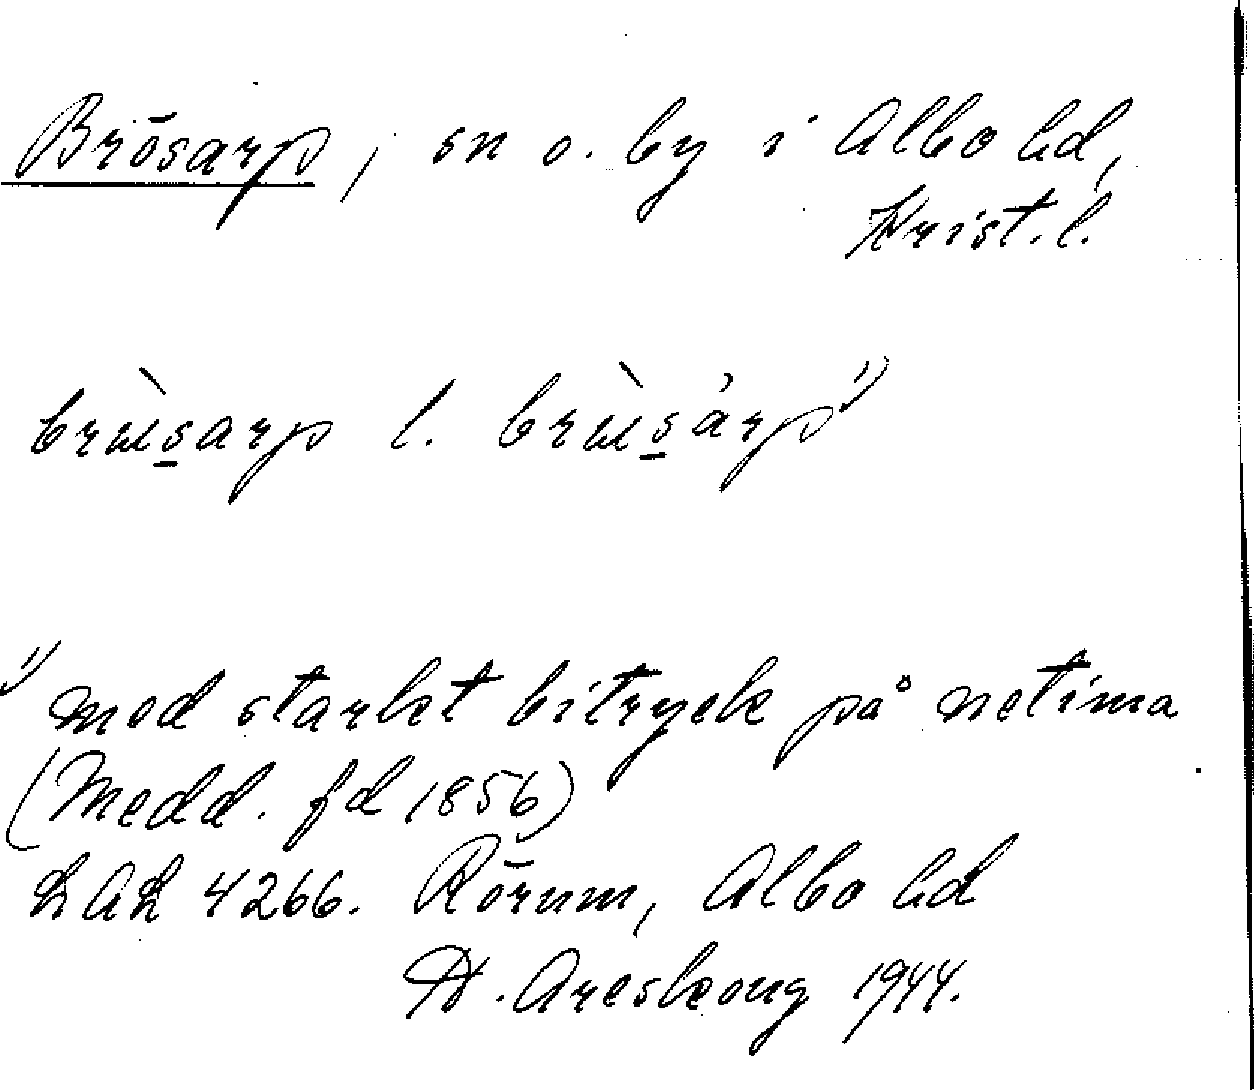 Brösarp, sn o. by i Albo hd,
Krist. l.
brùs̲arp l. brùs̲árp ¹⁾
¹⁾ med starkt bitryck på netima
(Medd. fd 1856)
LAL 4266. Rörum, Albo hd
H. Areskoug 1944.